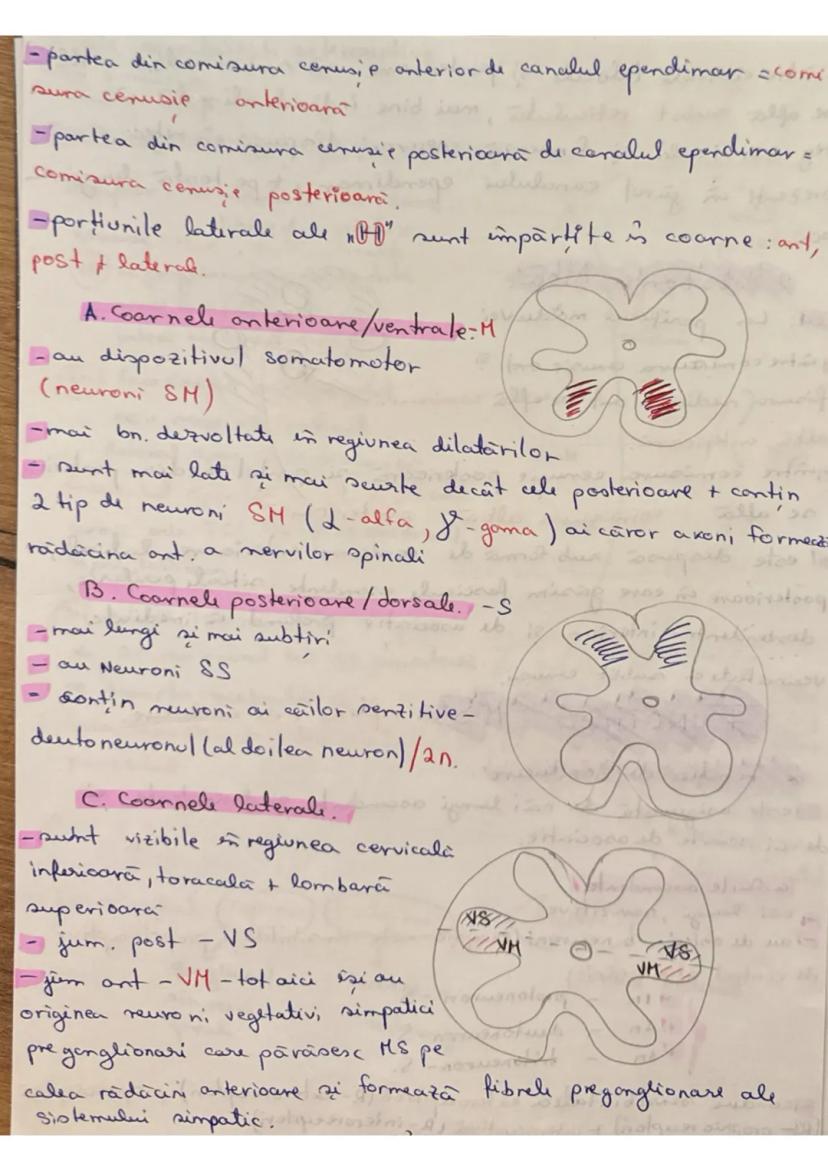 - partea din comisura cenușie anterior de canalul ependimar = comi
sura cenușie anterioară
- partea din comisura cenușie posterioară de canalul ependimar =
comisura cenușie posterioară.
- porțiunile laterale ale „H" sunt împărțite în coarne : ant,
post + laterale.
A. Coarnele anterioare/ventrale: M
- au dispozitivul somatomotor
(neuroni SM)
- mai bn. dezvoltate în regiunea dilatărilor
- sunt mai late și mai scurte decât cele posterioare + conțin
2 tip de neuroni SM (α-alfa, γ-gama) ai căror axoni formează
rădăcina ant. a nervilor spinali
B. Coarnele posterioare/dorsale. - S
- mai lungi și mai subțiri
- au Neuroni SS
- conțin neuroni ai căilor senzitive -
deutoneuronul (al doilea neuron)/2n.
C. Coarnele laterale.
- sunt vizibile în regiunea cervicală
inferioară, toracală + lombară
superioară
- jum. post - VS
- jum ant - VM - tot aici își au
originea neuroni vegetativi simpatici
preganglionari care părăsesc MS pe
calea rădăcini anterioare și formează fibrele preganglionare ale
sistemului simpatic.
VS
VM
VS
VM